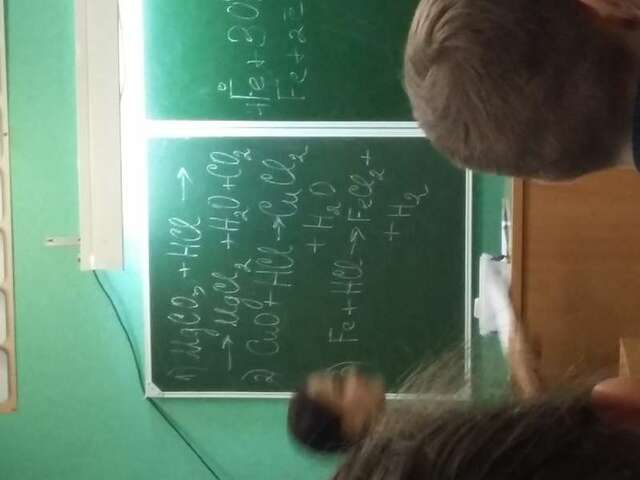 1) MgCO₃ + HCl →
→ MgCl₂ + H₂O + CO₂
2) CuO + HCl → CuCl₂
+ H₂O
) Fe + HCl → FeCl₂ +
+ H₂
0
4Fe + 3O
Fe + 2ē